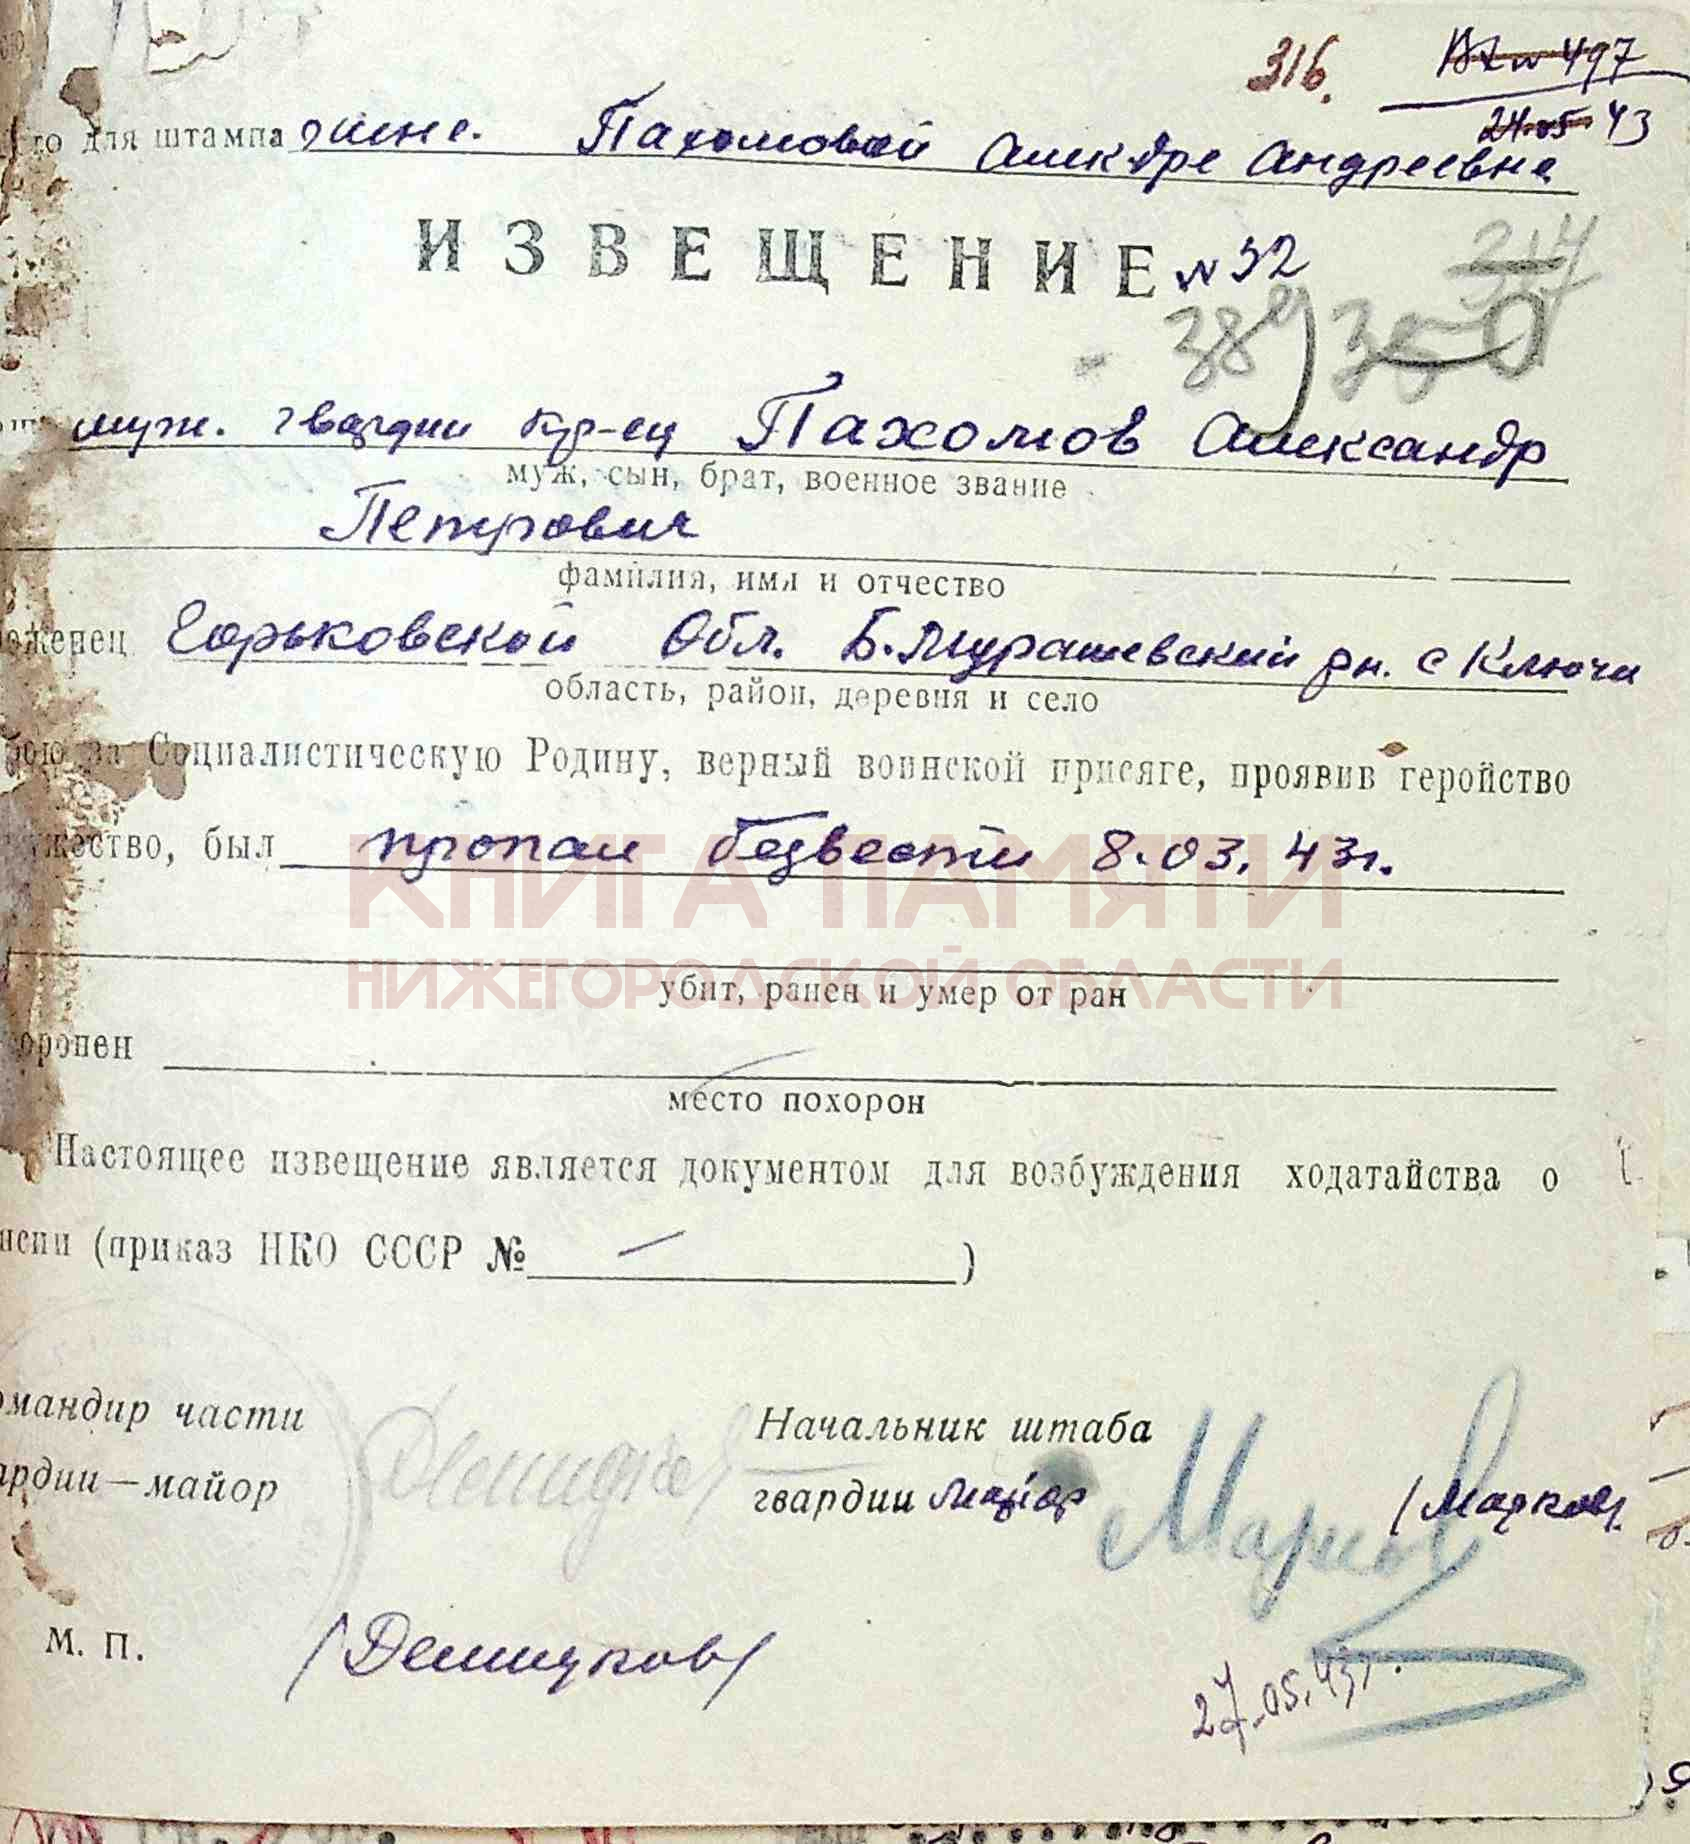 316.
497
24.05 43
то для штампа жене. Пахомовой Алекдре Андреевне
ИЗВЕЩЕНИЕ N 32
217
389 350
муж. гвардии кр-ец Пахомов Александр
муж, сын, брат, военное звание
Петрович
фамилия, имя и отчество
оженец Горьковской Обл. Б.Мурашевский рн. с Ключи
область, район, деревня и село
бою за Социалистическую Родину, верный воинской присяге, проявив геройство
ужество, был пропал безвести 8.03.43г.
КНИГА ПАМЯТИ
НИЖЕГОРОДСКОЙ ОБЛАСТИ
убит, ранен и умер от ран
оронен
место похорон
Настоящее извещение является документом для возбуждения ходатайства о
нсии (приказ НКО СССР № — )
омандир части Начальник штаба
ардии—майор гвардии майор Марков /Марков/
М. П. /Демидков/
27.05.43г.